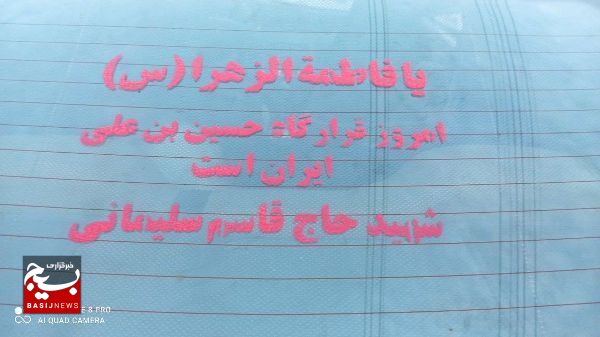 یا فاطمة الزهرا (س)
امروز قرارگاه حسین بن علی
ایران است
شهید حاج قاسم سلیمانی
خبرگزاری
بسیج
BASIJNEWS
E 8 PRO
AI QUAD CAMERA